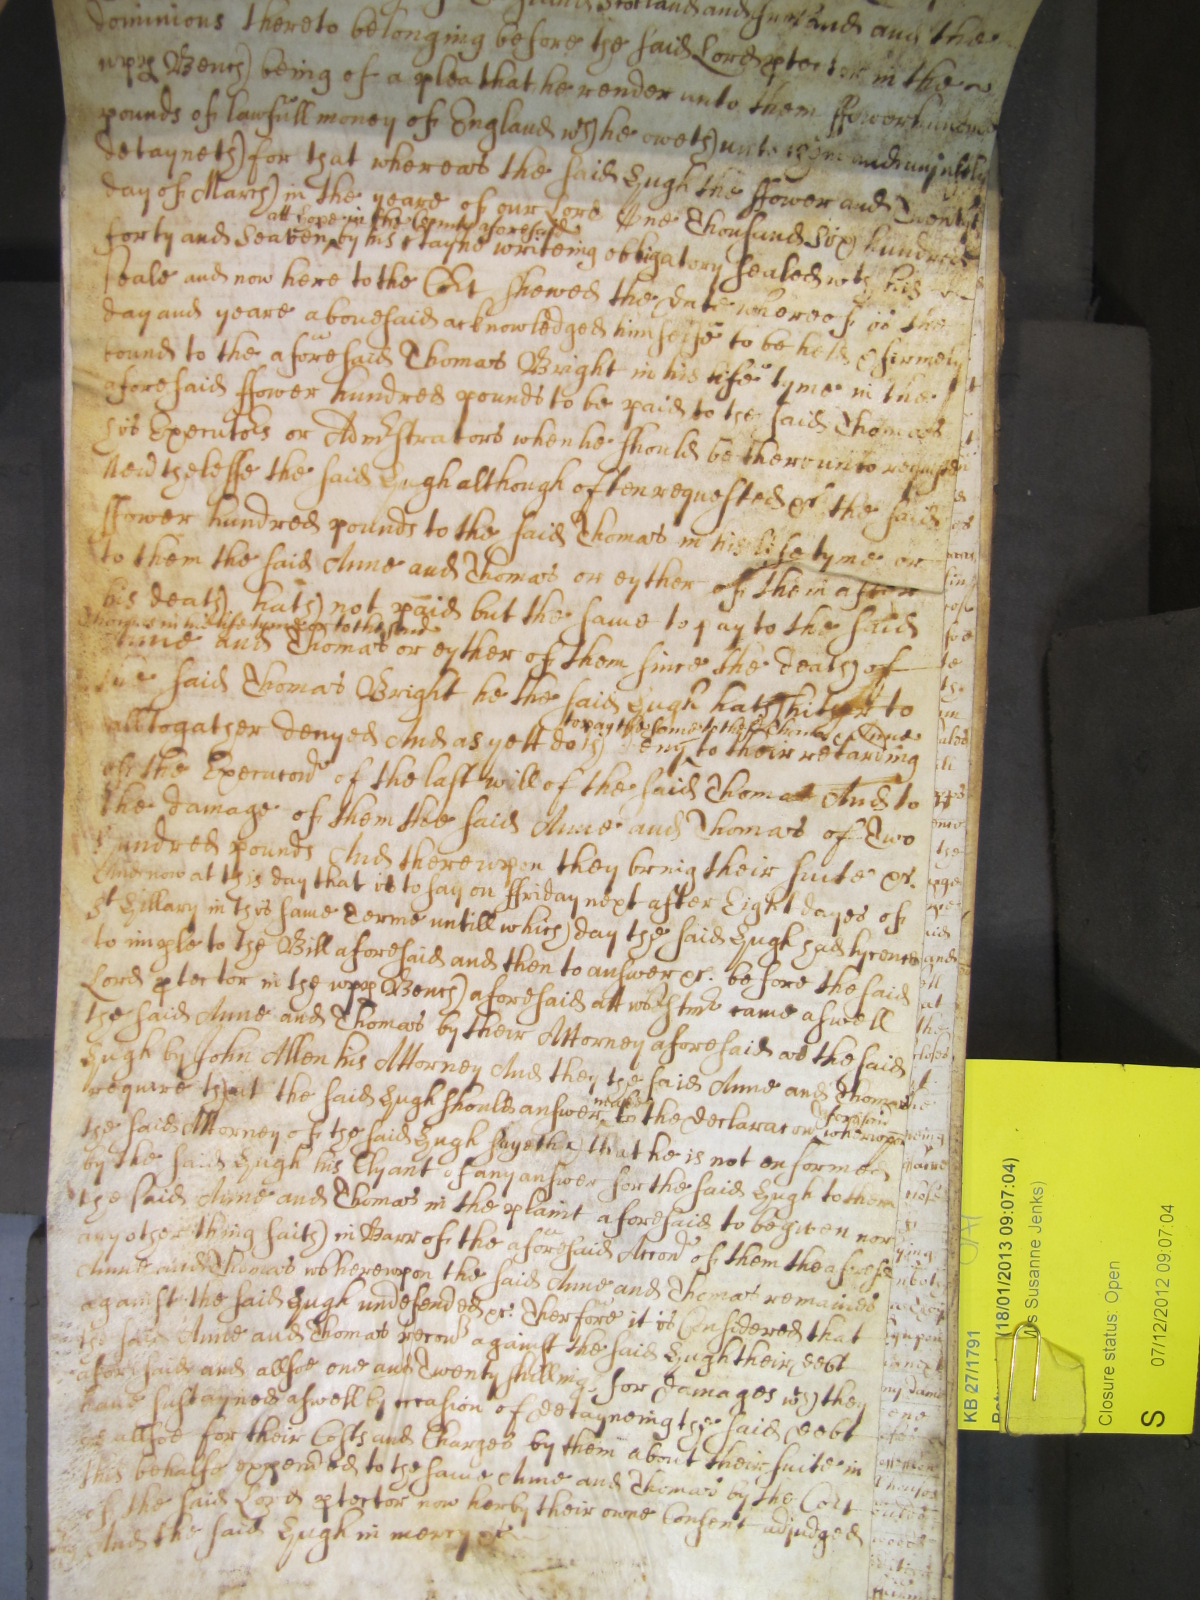 Scotland and Ireland and the
dominions thereto belonging before the said Lord ptector in the
upp Bench) being of a plea that he render unto them ffower hundred
pounds of lawfull money of England wch he oweth) unto them and unjustly
detayneth) for that whereas the said Hugh the ffower and Twentyth
day of March) in the yeare of our Lord One Thousand Six hundred
att in the County aforesaid
forty and Seaven by his certayne writeing obligatory sealed wth his
seale and now here to the Cort shewed the date whereof is the
day and yeare abovesaid acknowledged himselfe to be held & firmely
bound to the aforesaid Thomas Bright in his life tyme in the
aforesaid ffower hundred pounds to be paid to the said Thomas
his Executors or Admistrators when he should be thereunto requested
Nevthelesse the said Hugh although often requested &c the said
ffower hundred pounds to the said Thomas in his life tyme or
to them the said Anne and Thomas or eyther of them after
his death) hath) not paid but the same to pay to the said
Thomas in his life tyme or to the said
Anne and Thomas or eyther of them since the death) of
the said Thomas Bright he the said Hugh hath) hitherto
to pay the same to the sd Thomas & Anne
alltogather denyed And as yett doth) deny to their retarding
of the Execucon of the last will of the said Thomas And to
the damage of them the said Anne and Thomas of Two
hundred pounds And thereupon they bring their suite &c.
And now at this day that is to say on ffriday next after Eight dayes of
St Hillary in this same Terme untill which) day the said Hugh had lycence
to imple to the Bill aforesaid and then to answer &c. before the said
Lord ptector in the upp Bench) aforesaid att Westmr came aswell
the said Anne and Thomas by their Attorney aforesaid as the said
Hugh by John Allen his Attorney And they the said Anne and Thomas
require that the said Hugh should answer to the declaracon whereupon
aforesaid
the said Attorney of the said Hugh sayeth) that he is not enformed
by the said Hugh his Clyant of any answer for the said Hugh to them
the said Anne and Thomas in the plaint aforesaid to be given nor
any other thing saith) in Barr of the aforesaid Accon of them the aforesd
Anne and Thomas whereupon the said Anne and Thomas remaines
against the said Hugh undefended &c. Therfore it is Considered that
the said Anne and Thomas recovr against the said Hugh their debt
aforesaid and allsoe one and Twenty shillings for damages wch they
have sustayned aswell by occasion of detayneing the said debt
as allsoe for their Costs and Charges by them about their suite in
this behalfe expended to the same Anne and Thomas by the Cort
of the said Lord ptector now here by their owne Consent adjudged
And the said Hugh in mercy &c
KB 27/1791
(18/01/2013 09:07:04)
Ms Susanne Jenks)
Closure status: Open
S
07/12/2012 09:07:04